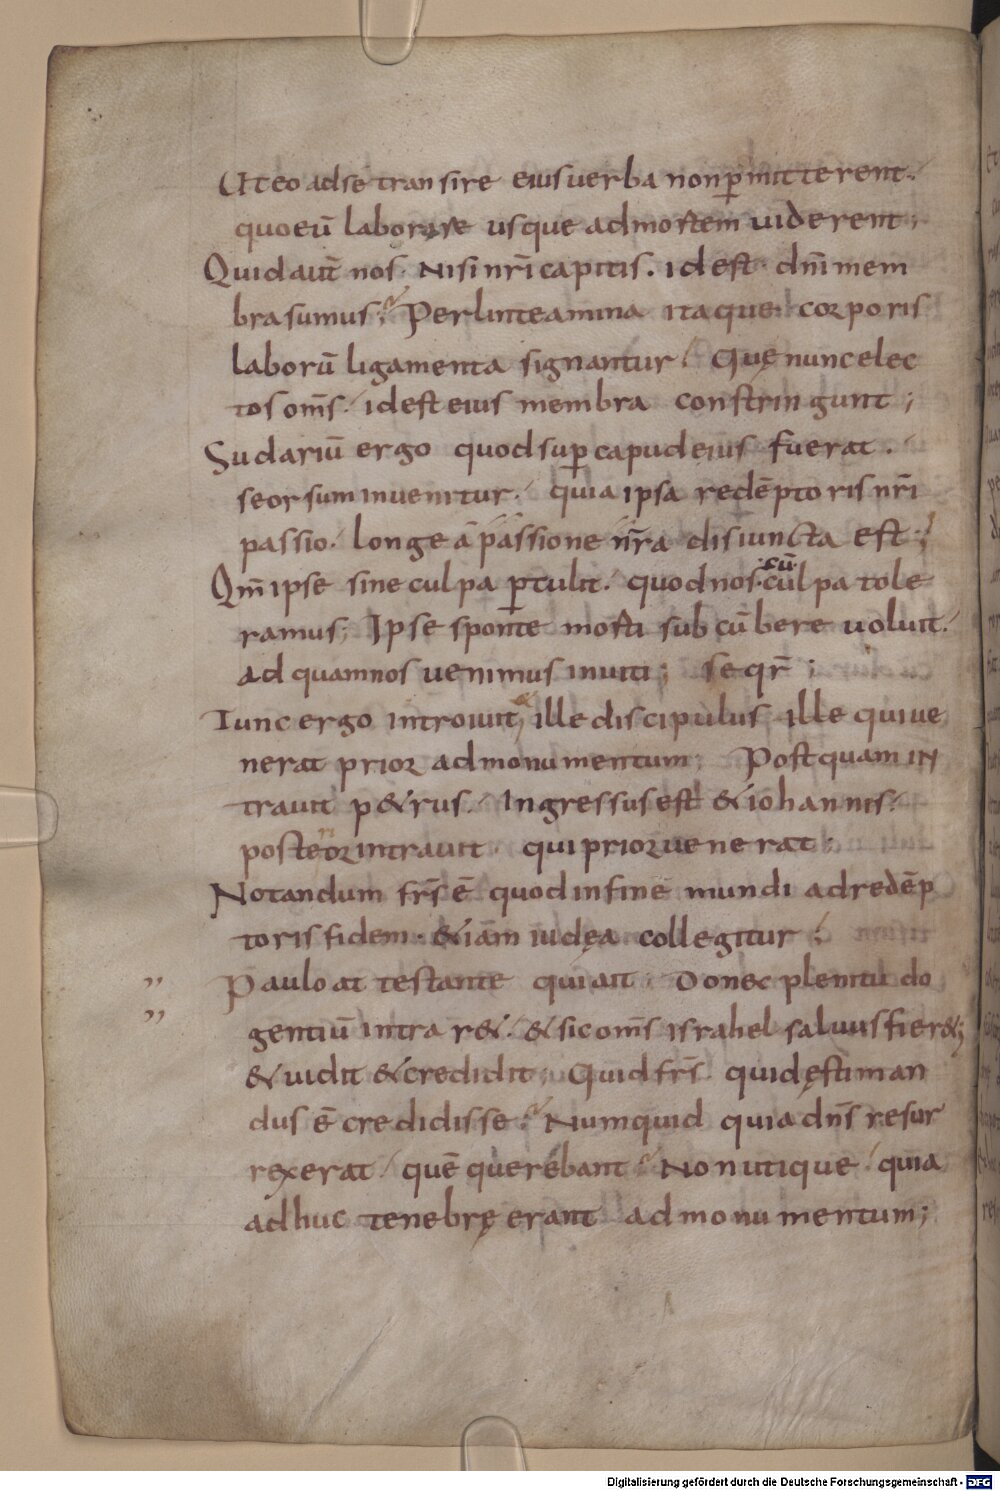 Ut eo ad se transire eius uerba non p̄mitterent.
quo eū laborare usque ad mortem uiderent;
Quid aut̄ nos. Nisi nr̄i capitis. id est. dn̄i mem
bra sumus; Per linteamina itaque corporis
laborū ligamenta signantur. Quę nunc elec
tos om̄s. id est eius membra constringunt;
Sudariū ergo quod sup̄ capud eius fuerat.
seorsum inuenitur. quia ipsa redēptoris nr̄i
passio. longe a passione nr̄a disiuncta est;
Qm̄ ipse sine culpa p̄tulit. quod nos cū culpa tole
ramus; Ipse sponte morti subcūbere uoluit.
ad quam nos uenimus inuiti; seqr̄;
Tunc ergo introiuit, ille discipulus ille qui ue
nerat prior ad monumentum; Postquam in
trauit p&rus. Ingressus est & iohannis.
posterior intrauit. qui prior uenerat.
Notandum fr̄s ē quod in fine mundi ad redēp
toris fidem. &iam iudęa collegitur;
" Paulo at testante qui ait. Donec plenitudo
" gentiū intrar&. & sic om̄s israhel saluus fier&;
& uidit & credidit; Quid fr̄s. quid ęstiman
dus ē credidisse? Numquid quia dn̄s resur
rexerat. quē querebant? Non utique. quia
adhuc tenebrę erant ad monumentum;
Digitalisierung gefördert durch die Deutsche Forschungsgemeinschaft - DFG